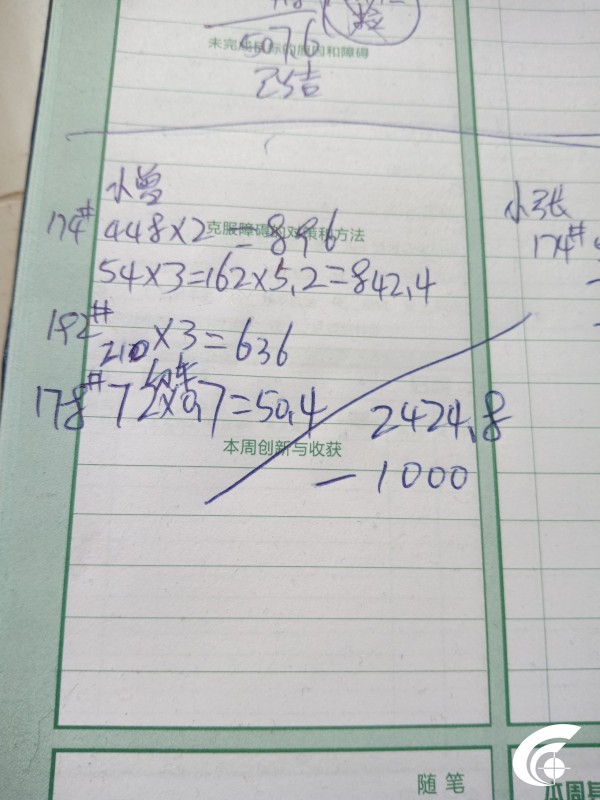 5076
未完成目标的原因和障碍
已结
小曾
174# 448×2=896
克服障碍的对策和方法
54×3=162×5.2=842.4
192# 210×3=636
178# 72×0.7=50.4
2424.8
本周创新与收获
-1000
小张
174#
随笔